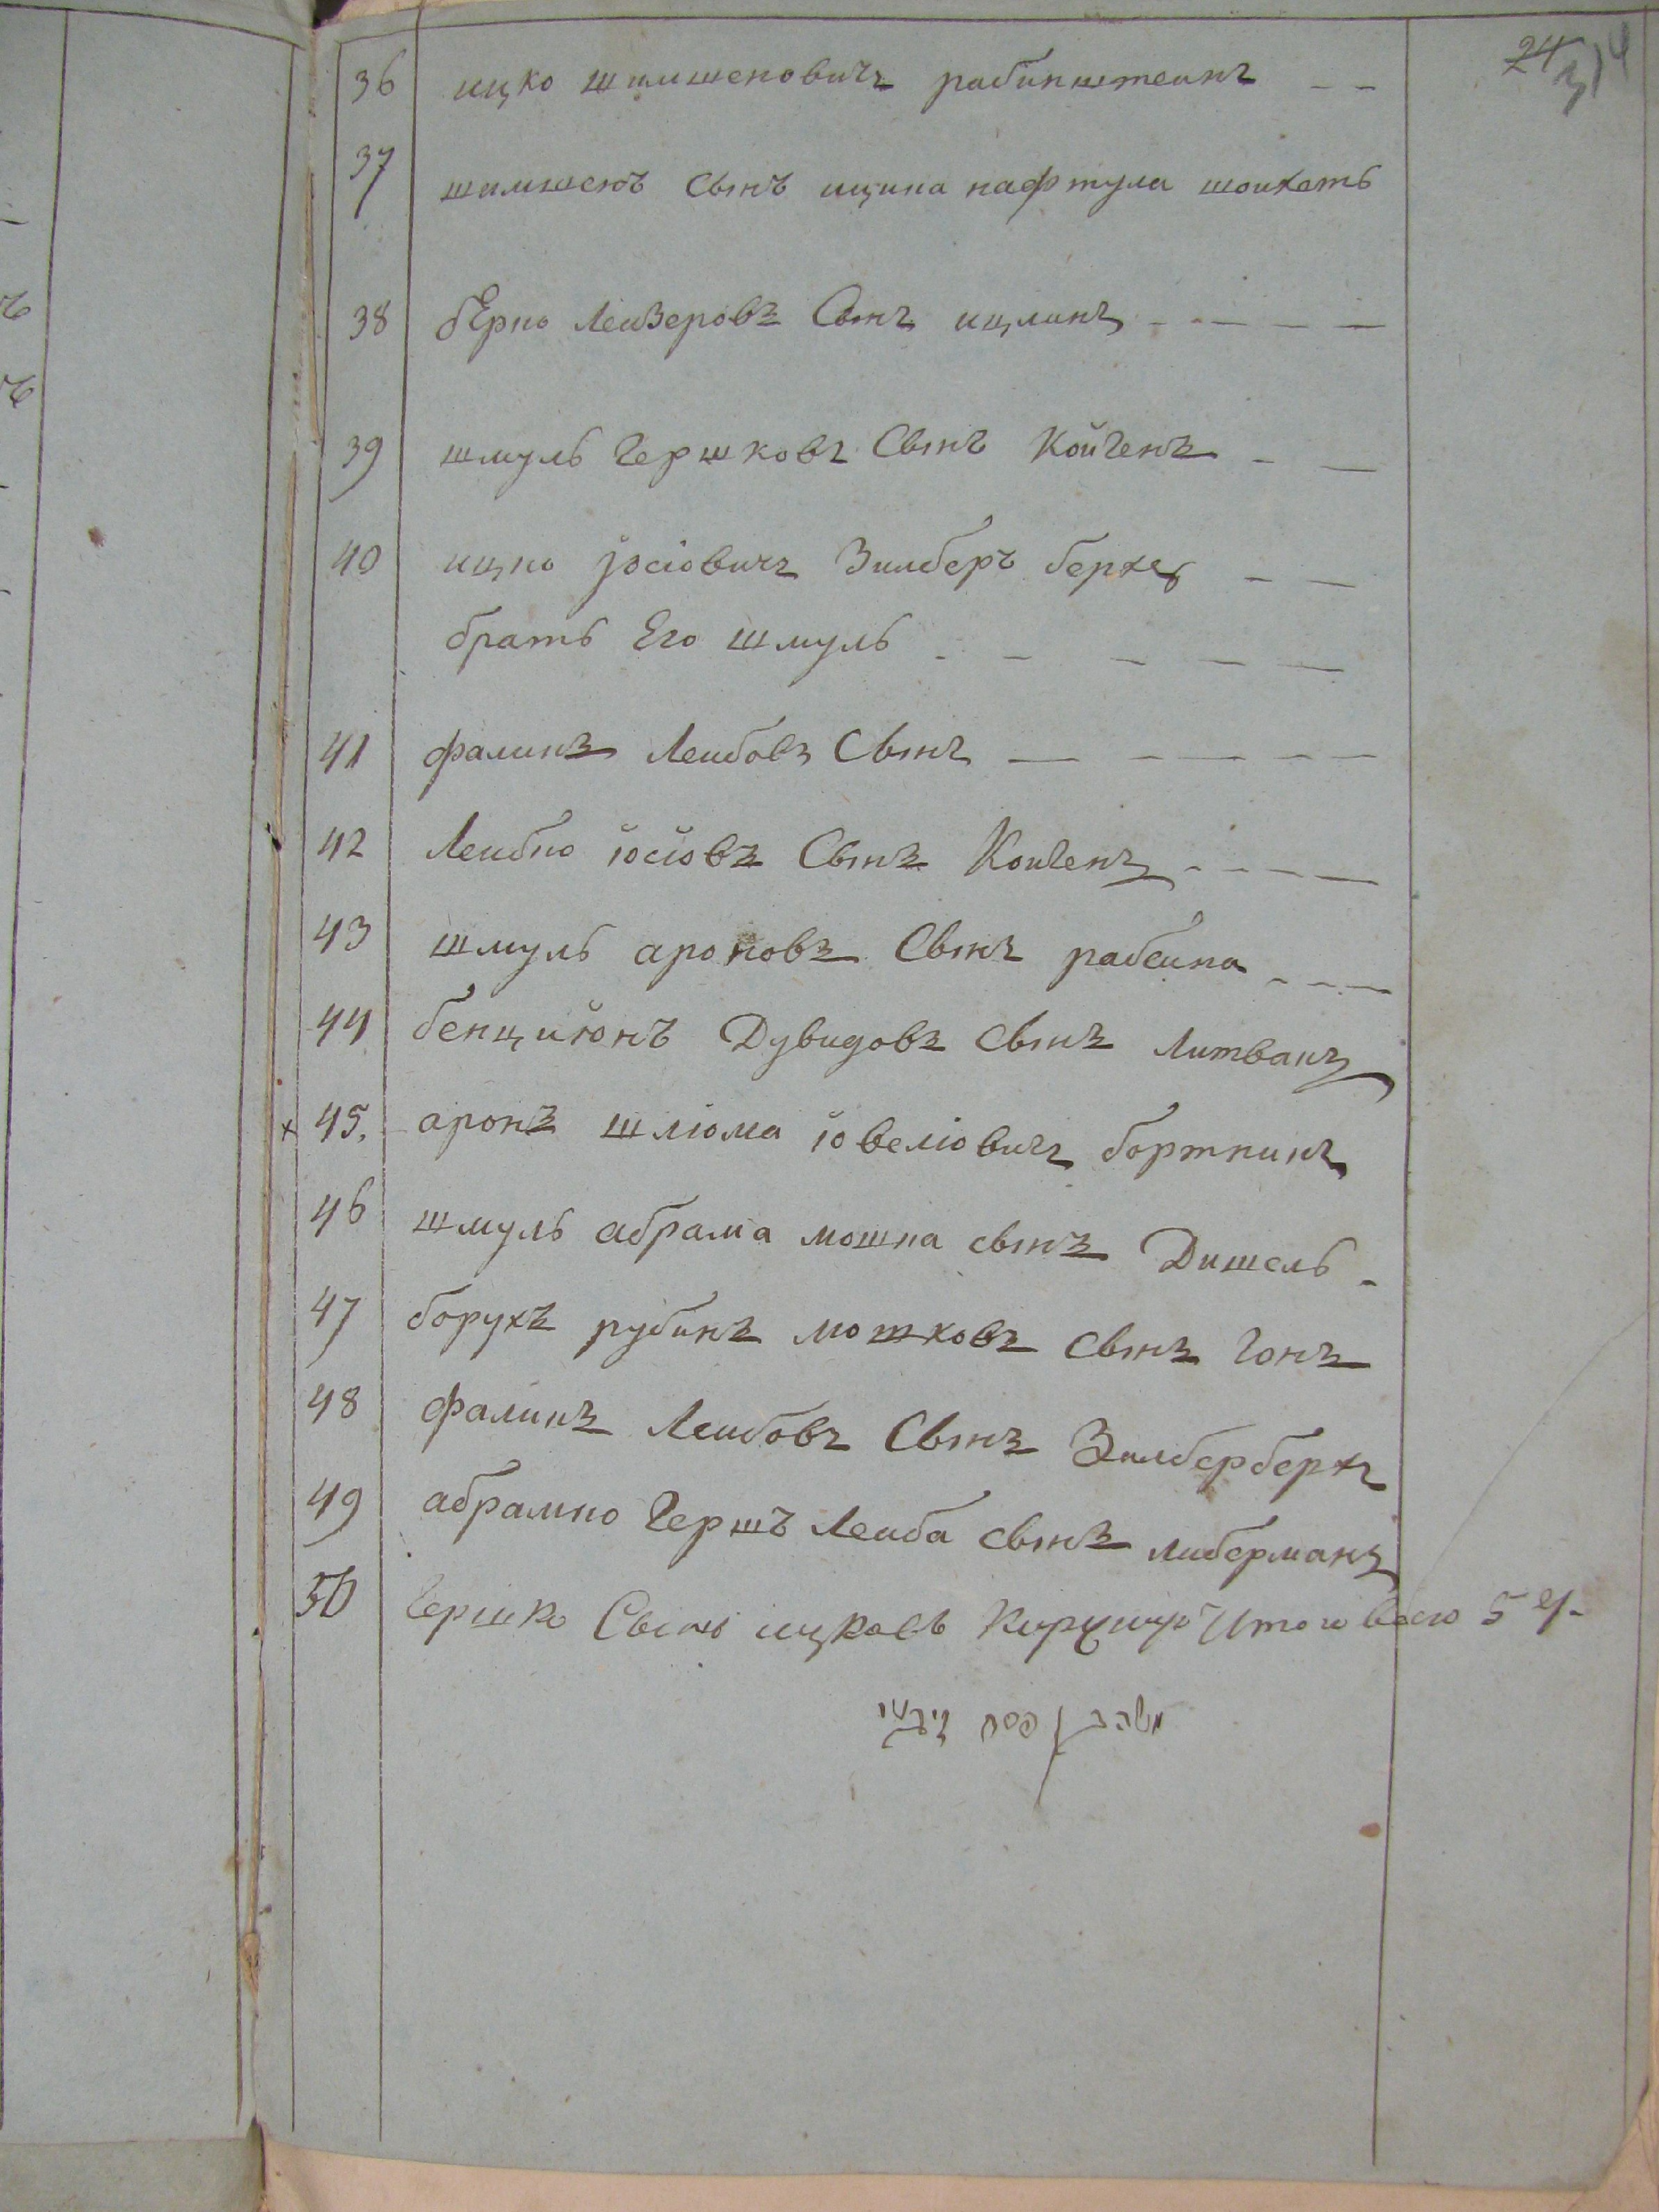 24
36 ицко шимшеновичъ рабинштеинъ - -
37 шимшенъ сынъ ицика нафтула шоихетъ
38 бЕрко Леизеровъ Сынъ ицликъ - - - - -
39 шмуль Гершковъ Сынъ Койгенъ - -
40 ицко јосіовичъ Зилберъ берхъ - -
братъ Его шмуль - - - - -
41 фаликъ Леибовъ Сынъ - - - - -
42 Леибко іосіовъ Сынъ Коигенъ - - - -
43 шмуль ароновъ Сынъ рабеика - - -
44 бенциіонъ Дувидовъ сынъ Литвакъ
х 45. аронъ шліома іовеліовичъ бортникъ
46 шмуль абрама мошка сынъ Дишель -
47 борухъ рубинъ мошковъ сынъ Гонъ
48 фаликъ Леибовъ Сынъ Зилберберхъ
49 абрамко Гершъ Леиба сынъ либерманъ
50 Гершко Сынъ ицковъ Итого всего 54.